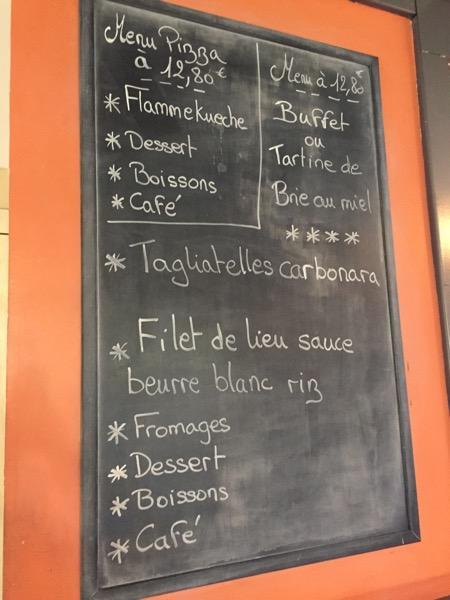 Menu Pizza
à 12,80€
* Flammekueche
* Dessert
* Boissons
* Café
Menu à 12,80€
Buffet
ou
Tartine de
Brie au miel
* * * *
* Tagliatelles carbonara
* Filet de lieu sauce
beurre blanc riz
* Fromages
* Dessert
* Boissons
* Café